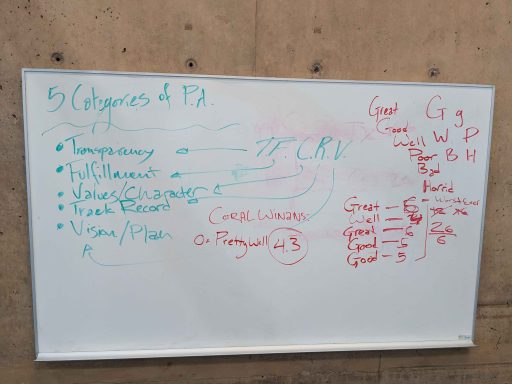 5 Categories of P.A.
• Transparency
• Fulfillment
• Values/Character
• Track Record
• Vision/Plan
T.F.C.R.V.
CORAL WINANS:
O = Pretty Well 4.3
Great G g
Good
Well W P
Poor B H
Bad
Horrid
Great - 6 - Worst Ever
Well - 4
Great - 6
Good - 5
Good - 5
26
6